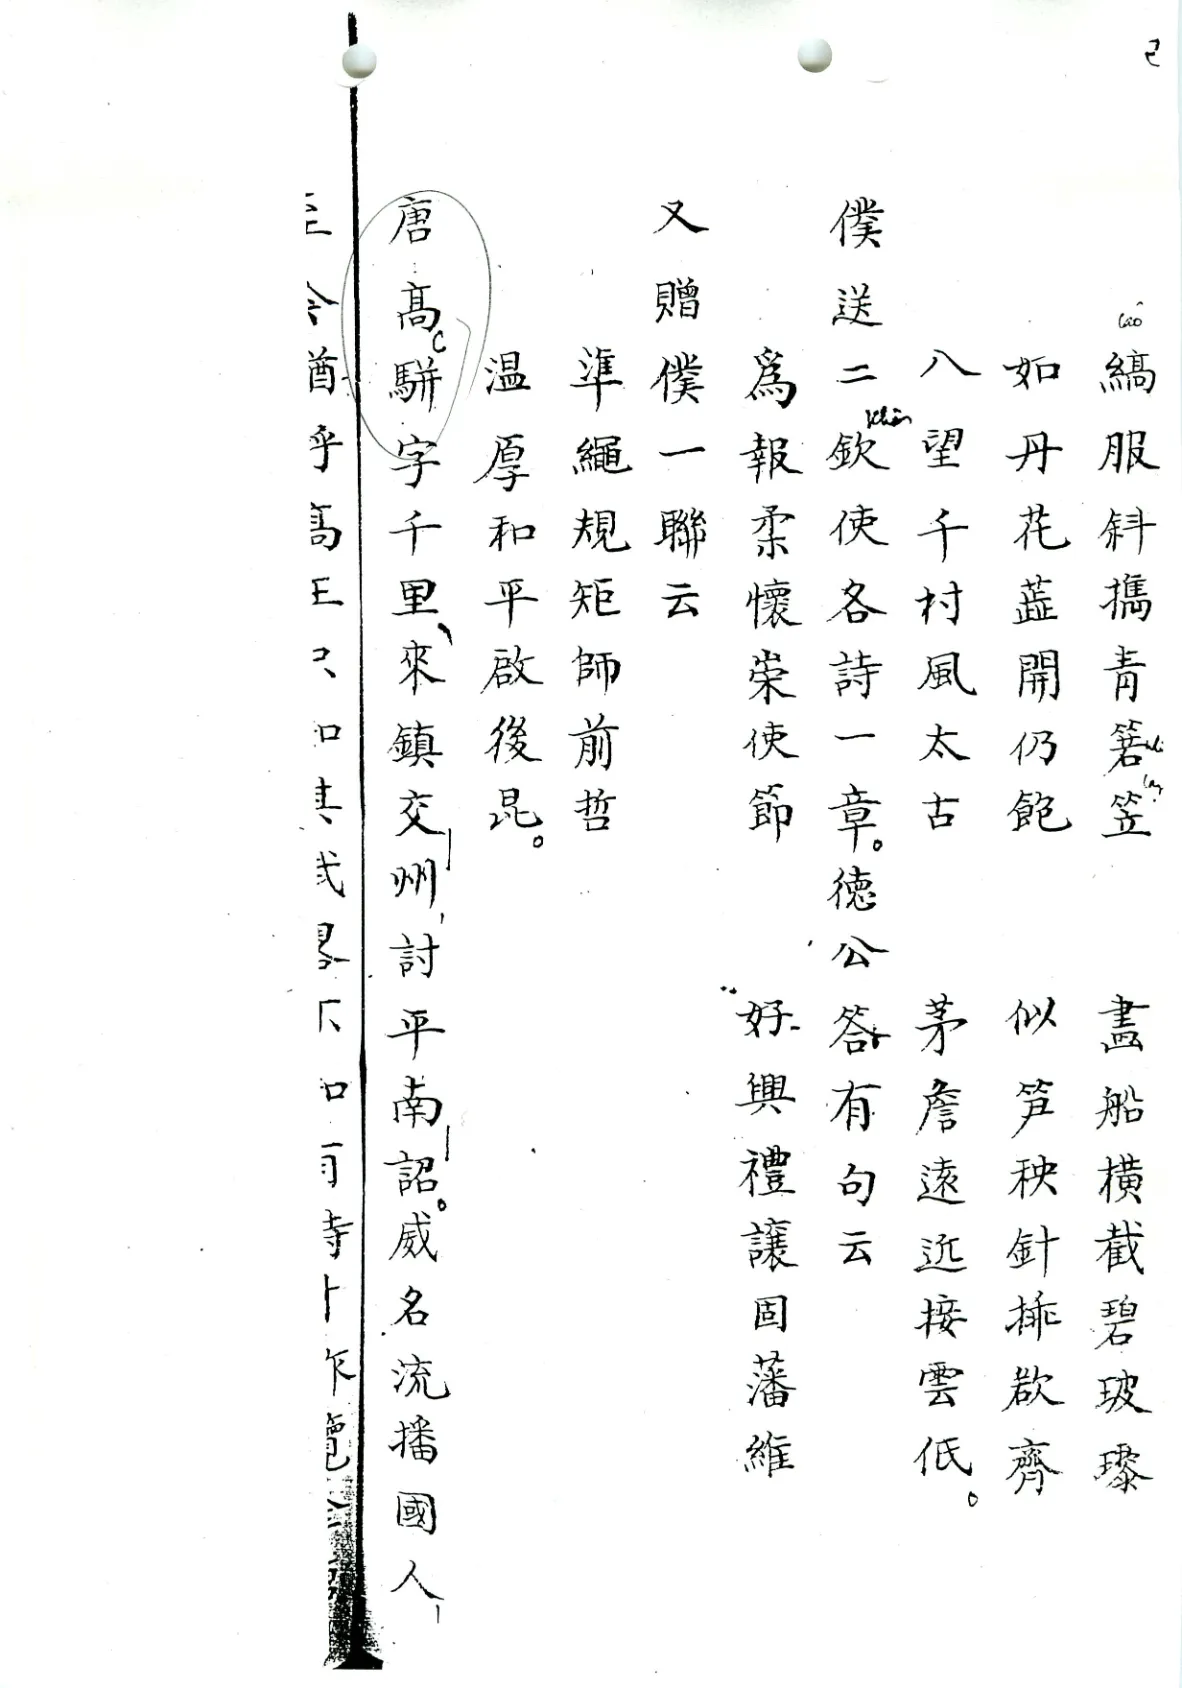 縞服斜攜青箬笠 畫船橫截碧玻瓈
如丹花蕋開仍飽 似笋秧針挿欲齊
八望千村風太古 茅詹遠近接雲低
僕送二欽使各詩一章德公答有句云
爲報柔懷崇使節 好興禮讓固藩維
又贈僕一聯云
準繩規矩師前哲
溫厚和平啟後昆
唐髙駢字千里來鎮交州討平南詔威名流播國人
至今酋乎髙王只知其武畧不知有詩
Cao
Khâm